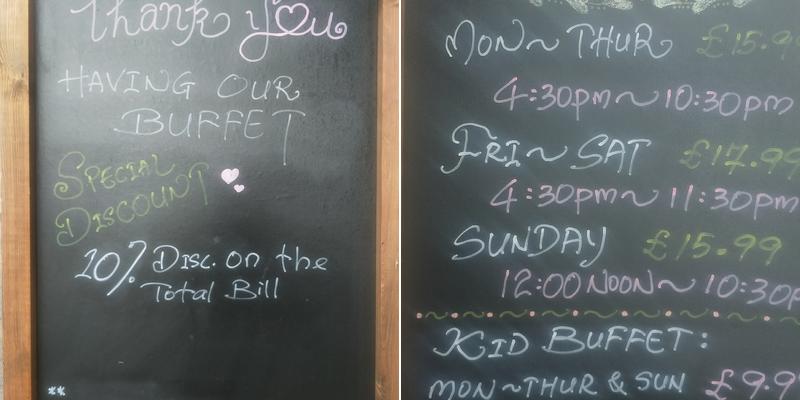 Thank you
HAVING OUR
BUFFET
SPECIAL
DISCOUNT
10% DISC. on the
Total Bill
**
MON~THUR £15.99
4:30pm~10:30pm
FRI~SAT £17.99
4:30pm~11:30pm
SUNDAY £15.99
12:00 NOON~10:30p
KID BUFFET:
MON~THUR & SUN £9.9